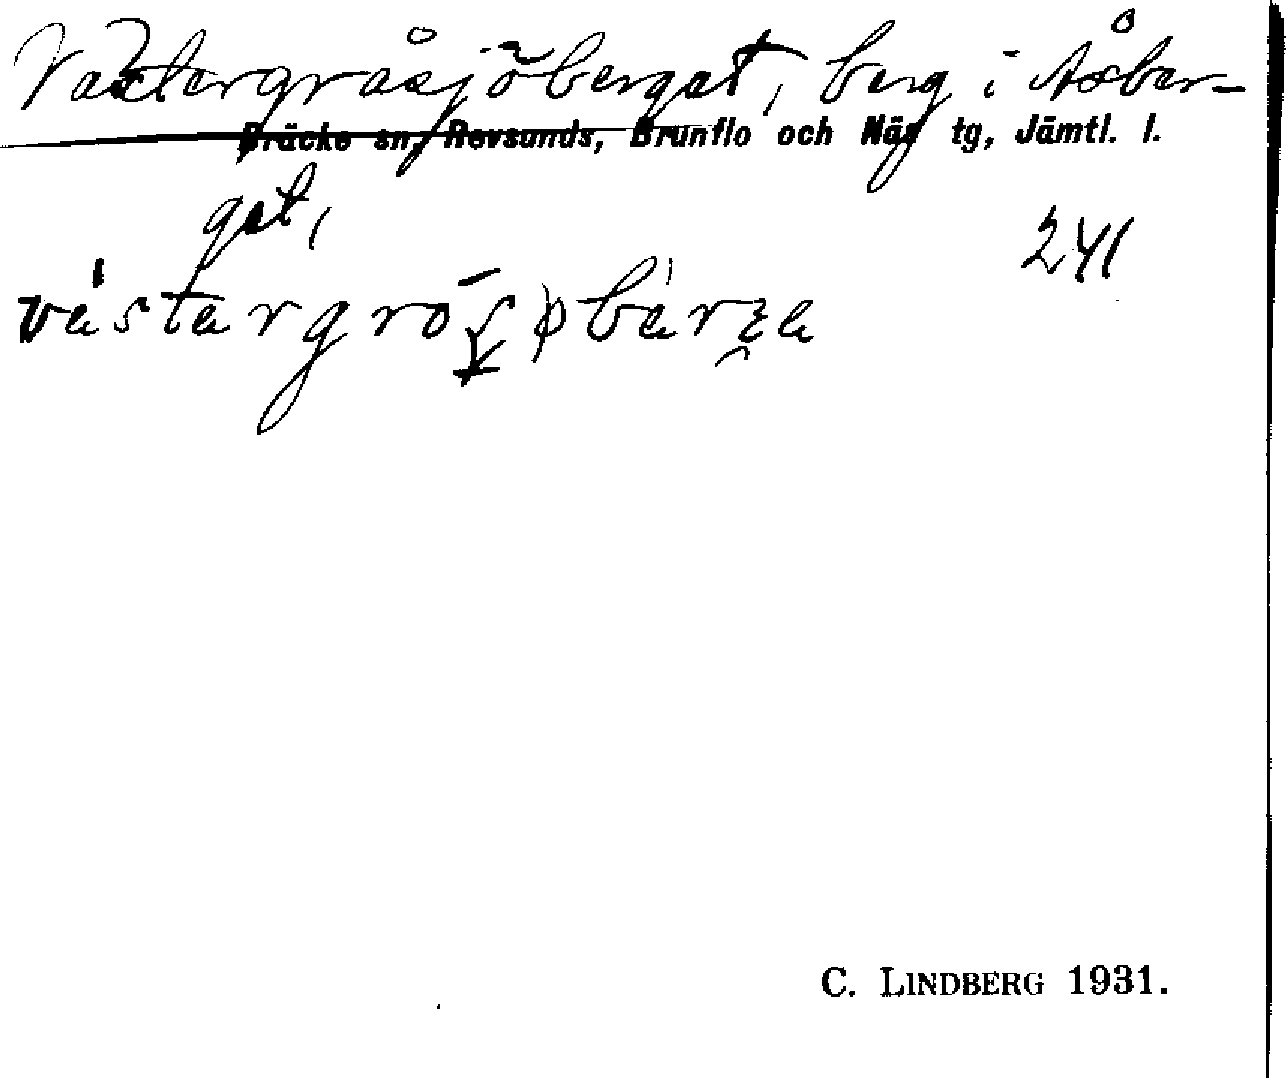 Västergråsjöberget, berg i Åsber-
Bräcke sn, Revsunds, Brunflo och Näs tg, Jämtl. l.
get,
241
C. LINDBERG 1931.